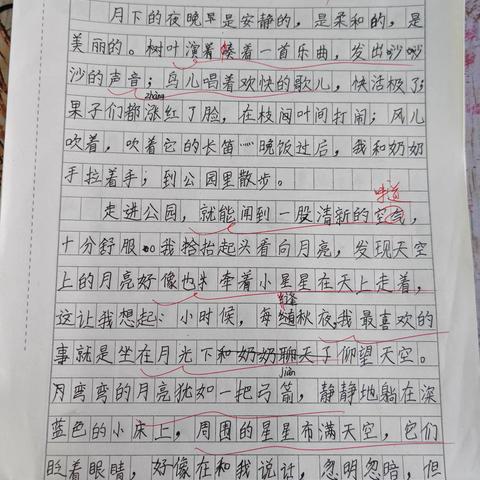 月下的夜晚早是安静的，是柔和的，是
美丽的。树叶演着奏着一首乐曲，发出沙沙
沙的声音；鸟儿唱着欢快的歌儿，快活极了；
zhàng
果子们都涨红了脸，在枝间叶间打闹；风儿
吹着，吹着它的长笛……晚饭过后，我和奶奶
手拉着手；到公园里散步。
味道
走进公园，就能闻到一股清新的空气，
十分舒服。我抬抬起头看向月亮，发现天空
上的月亮好像也牵着小星星在天上走着，
逢
这让我想起：小时候，每秋夜，我最喜欢的
事就是坐在月光下和奶奶聊天了仰望天空。
jiàn
月弯弯的月亮犹如一把弓箭，静静地躺在深
蓝色的小床上，周围的星星布满天空，它们
眨着眼睛，好像在和我说话，忽明忽暗，但